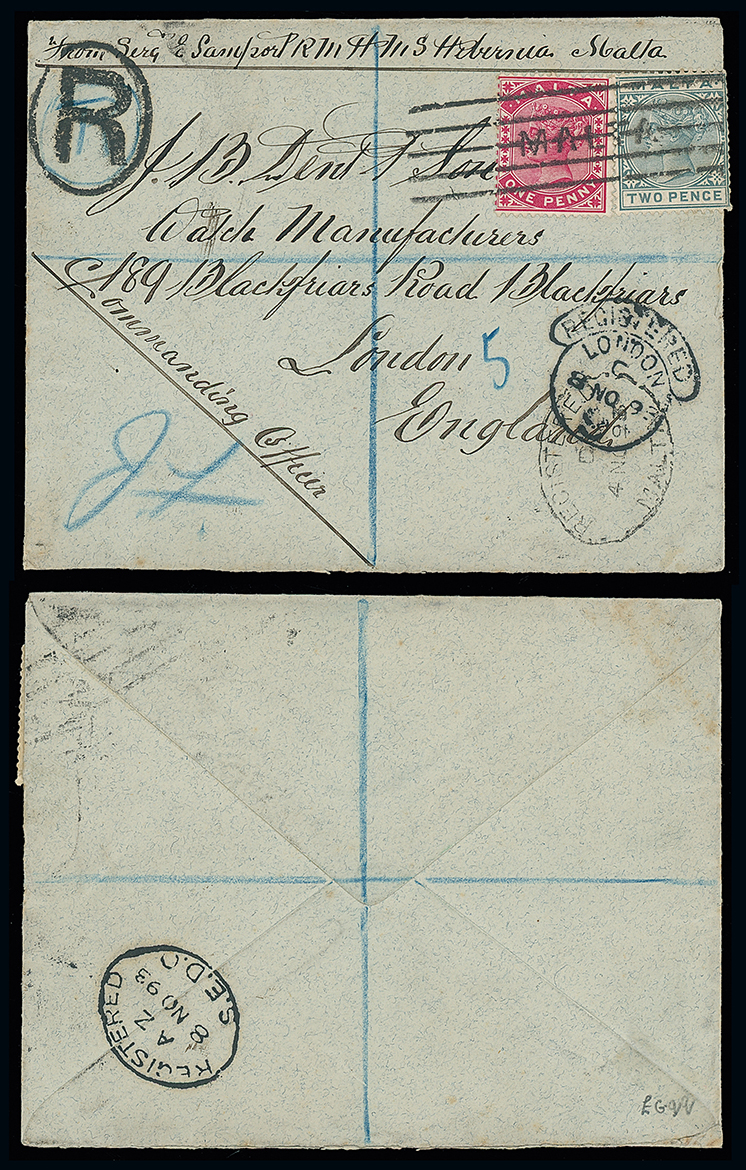 From Serg E Samford R M H M S Hibernia Malta
R
MALTA
ONE PENNY
MALTA
TWO PENCE
MAL
J. B Dent & Son
Watch Manufacturers
189 Blackfriars Road Blackfriars
London 5
England
Commanding Officer
REGISTERED
LONDON
8 NO 93
REGISTERED
4 NO
MALTA
REGISTERED
A Z
8 NO 93
S.E.D.O